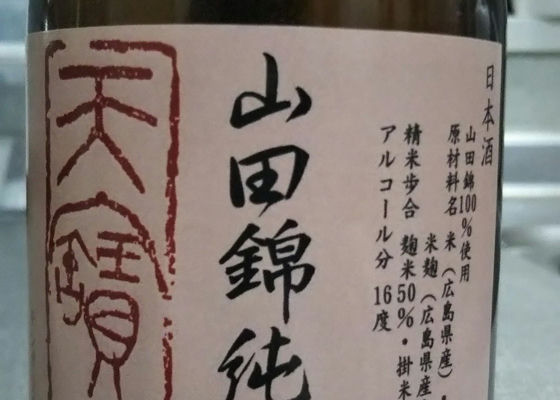 日本酒
山田錦100%使用
原材料名 米（広島県産）・
米麹（広島県産
精米歩合 麹米50%・掛米
アルコール分 16度
山田錦 純
天寶